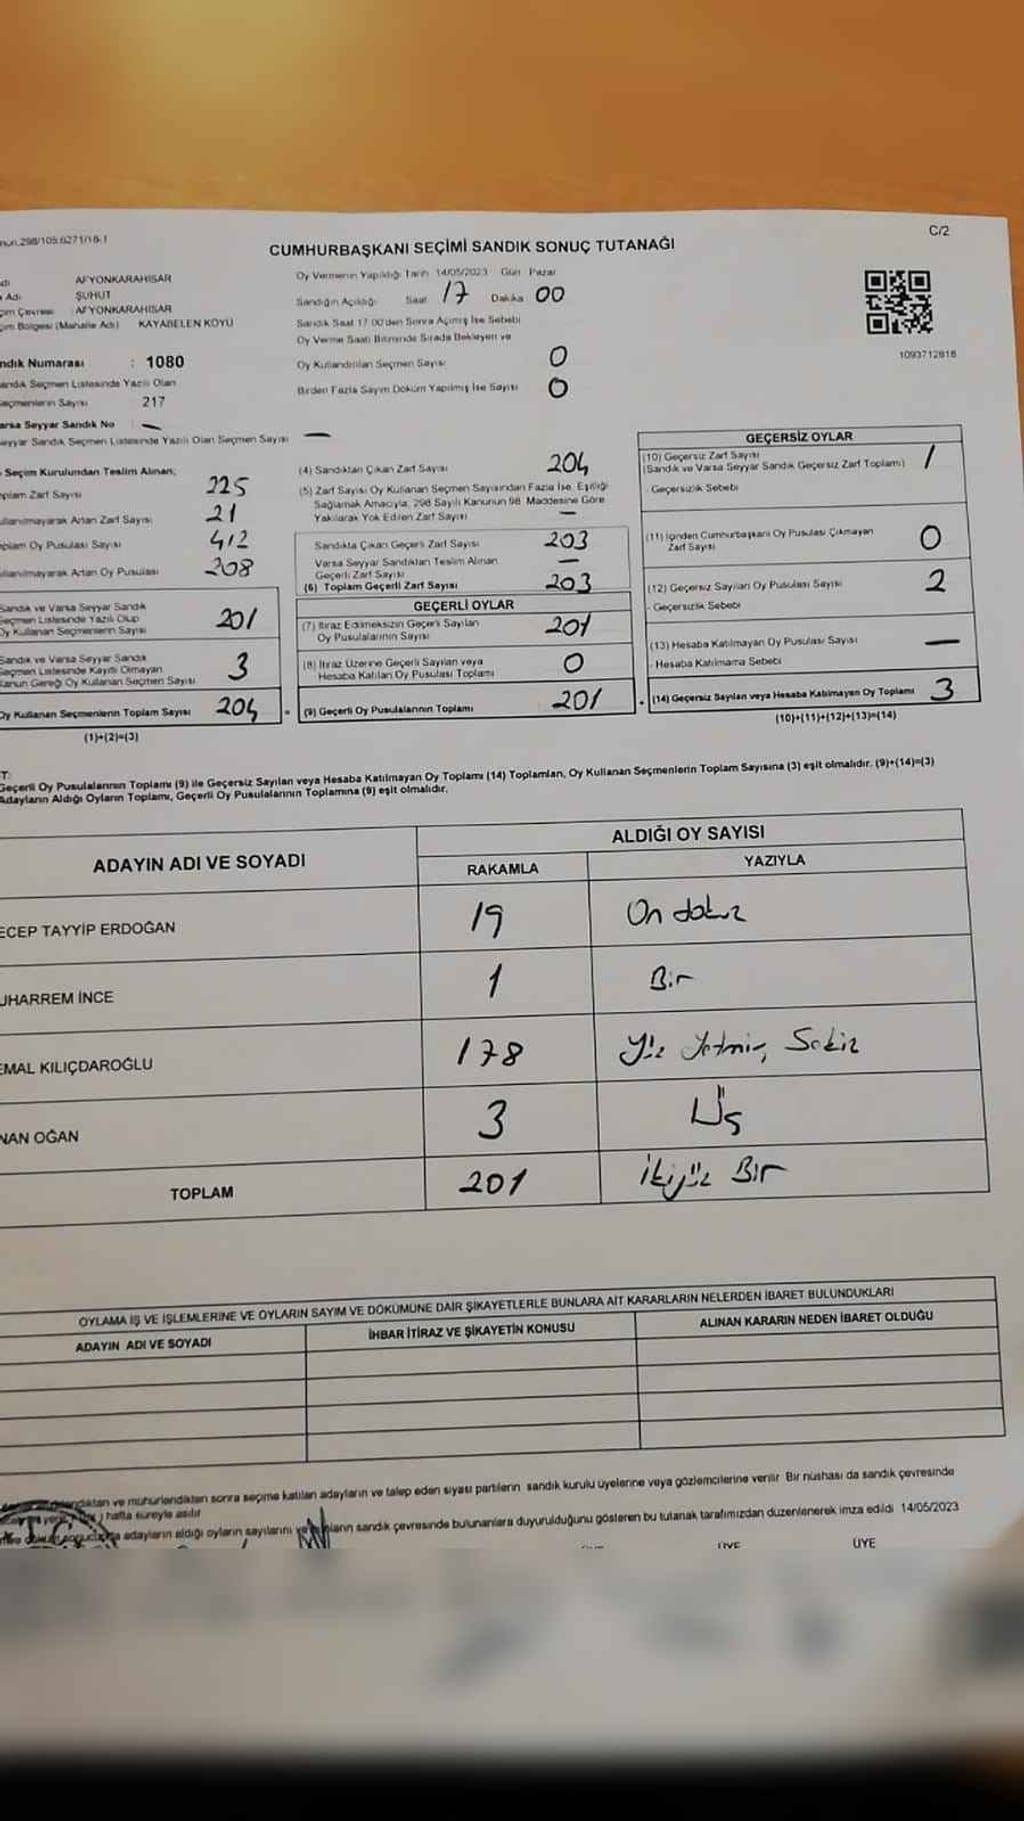 C/2
CUMHURBAŞKANI SEÇİMİ SANDIK SONUÇ TUTANAĞI
AFYONKARAHİSAR
Adı ŞUHUT
AFYONKARAHİSAR
(Mahalle Adı) KAYABELEN KÖYÜ
Numarası : 1080
Seçmen Listesinde Yazılı Olan
Sayısı 217
Seyyar Sandık No —
Sandık Seçmen Listesinde Yazılı Olan Seçmen Sayısı —
Oy Vermenin Yapıldığı Tarih 14/05/2023 Gün Pazar
Sandığın Açıldığı Saat 17 Dakika 00
Sandık Saat 17:00'den Sonra Açılmış İse Sebebi
Oy Verme Saati Bitiminde Sırada Bekleyen ve
Oy Kullandırılan Seçmen Sayısı 0
Birden Fazla Sayım Döküm Yapılmış İse Sayısı 0
1093712818
Seçim Kurulundan Teslim Alınan;
Zarf Sayısı 225
Artan Zarf Sayısı 21
Oy Pusulası Sayısı 412
Artan Oy Pusulası 208
Sandık ve Varsa Seyyar Sandık
Seçmen Listesinde Yazılı Olup
Oy Kullanan Seçmenlerin Sayısı 201
Sandık ve Varsa Seyyar Sandık
Seçmen Listesinde Kayıtlı Olmayan
Kanun Gereği Oy Kullanan Seçmen Sayısı 3
Oy Kullanan Seçmenlerin Toplam Sayısı 204
(1)+(2)=(3)
(4) Sandıktan Çıkan Zarf Sayısı 204
(5) Zarf Sayısı Oy Kullanan Seçmen Sayısından Fazla İse, Eşitliği
Sağlamak Amacıyla, 298 Sayılı Kanunun 98. Maddesine Göre
Yakılarak Yok Edilen Zarf Sayısı —
Sandıkta Çıkan Geçerli Zarf Sayısı 203
Varsa Seyyar Sandıktan Teslim Alınan
Geçerli Zarf Sayısı —
(6) Toplam Geçerli Zarf Sayısı 203
GEÇERLİ OYLAR
(7) İtiraz Edilmeksizin Geçerli Sayılan
Oy Pusulalarının Sayısı 201
(8) İtiraz Üzerine Geçerli Sayılan veya
Hesaba Katılan Oy Pusulası Toplamı 0
(9) Geçerli Oy Pusulalarının Toplamı 201
GEÇERSİZ OYLAR
(10) Geçersiz Zarf Sayısı
(Sandık ve Varsa Seyyar Sandık Geçersiz Zarf Toplamı) 1
Geçersizlik Sebebi
(11) İçinden Cumhurbaşkanı Oy Pusulası Çıkmayan
Zarf Sayısı 0
(12) Geçersiz Sayılan Oy Pusulası Sayısı 2
- Geçersizlik Sebebi
(13) Hesaba Katılmayan Oy Pusulası Sayısı —
- Hesaba Katılmama Sebebi
(14) Geçersiz Sayılan veya Hesaba Katılmayan Oy Toplamı 3
(10)+(11)+(12)+(13)=(14)
Geçerli Oy Pusulalarının Toplamı (9) ile Geçersiz Sayılan veya Hesaba Katılmayan Oy Toplamı (14) Toplamları, Oy Kullanan Seçmenlerin Toplam Sayısına (3) eşit olmalıdır. (9)+(14)=(3)
Adayların Aldığı Oyların Toplamı, Geçerli Oy Pusulalarının Toplamına (9) eşit olmalıdır.
ADAYIN ADI VE SOYADI ALDIĞI OY SAYISI
RAKAMLA YAZIYLA
ECEP TAYYİP ERDOĞAN 19 On dokuz
UHARREM İNCE 1 Bir
EMAL KILIÇDAROĞLU 178 Yüz Yetmiş Sekiz
NAN OĞAN 3 Üç
TOPLAM 201 İkiyüz Bir
OYLAMA İŞ VE İŞLEMLERİNE VE OYLARIN SAYIM VE DÖKÜMÜNE DAİR ŞİKAYETLERLE BUNLARA AİT KARARLARIN NELERDEN İBARET BULUNDUKLARI
ADAYIN ADI VE SOYADI İHBAR İTİRAZ VE ŞİKAYETİN KONUSU ALINAN KARARIN NEDEN İBARET OLDUĞU
ve mühürlendikten sonra seçime katılan adayların ve talep eden siyasi partilerin sandık kurulu üyelerine veya gözlemcilerine verilir. Bir nüshası da sandık çevresinde
hafta süreyle asılır
adayların aldığı oyların sayılarını sandık çevresinde bulunanlara duyurulduğunu gösteren bu tutanak tarafımızdan düzenlenerek imza edildi 14/05/2023
ÜYE ÜYE